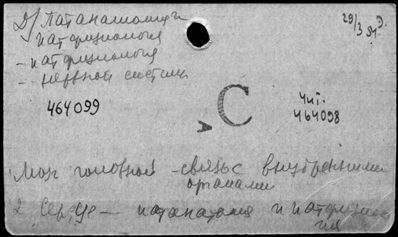 Д/ Патанатомия
патфизиология
- патфизиология
- нервной системы
29/3 51
464099
С
Чит.
464098
Мозг головной - связь с внутренними
органами
2 Сердце - патанатомия и патфизиоло
гия